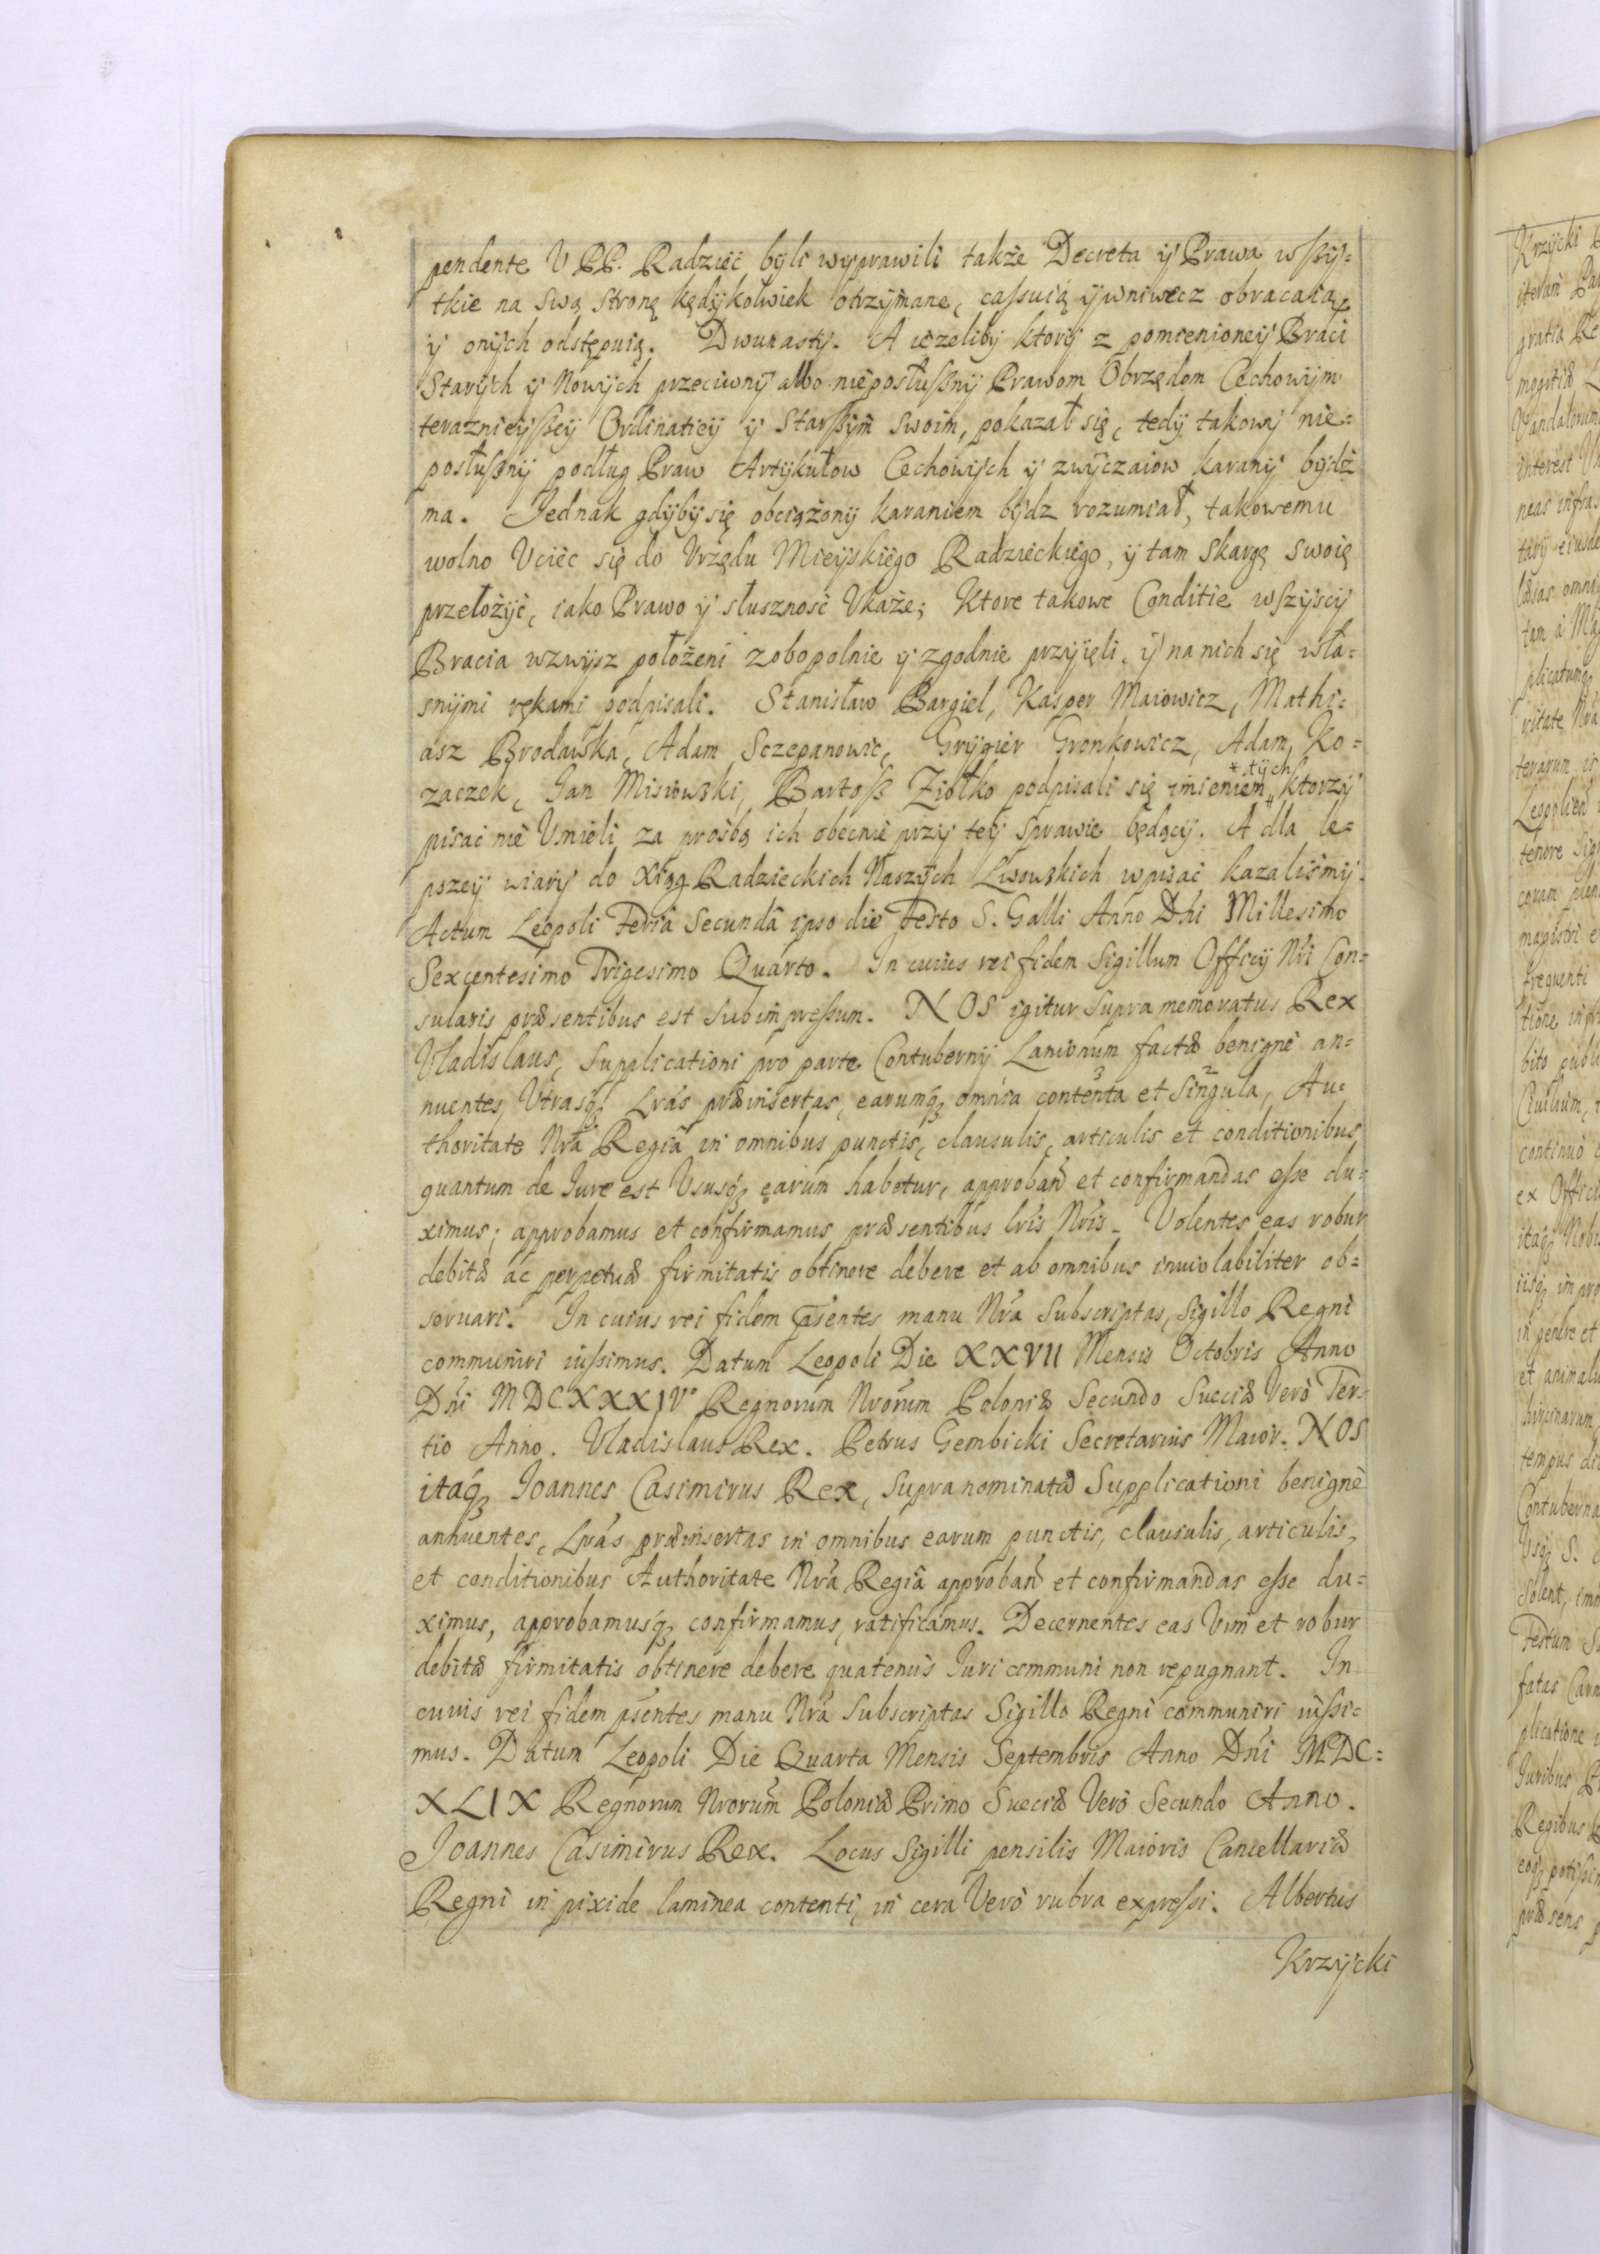 pendente V PP. Radziec byli wyprawili także Decreta ÿ Prawa wſzÿ-
tkie na Swą Stronę kędÿkolwiek otrzÿmane, caſsuią ÿ wniwecz obracaią
ÿ onÿch odstępuią. Dwunastÿ. A ieżeliby ktorÿ z pomienioneÿ Braci
Starÿch ÿ Nowÿch przeciwnÿ albo nieposlußnÿ Prawom Obrzędom Cechowÿm
teraznieÿßeÿ Ordinatieÿ ÿ Starßÿm Swoim, pokazał się, tedy takowÿ nie-
posłußnÿ podług Praw Artÿkułow Cechowÿch ÿ zwÿczaiow karanÿ bÿdź
ma. Jednak gdÿbÿ się obciążonÿ karaniem bÿdz rozumiał, takowemu
wolno Vciec się do Vrzędu Mieÿskiego Radzieckiego, ÿ tam Skargę Swoię
przełożÿć, iako Prawo ÿ słuszność Vkaże; Ktore takowe Conditie wſzÿscÿ
Bracia wzwÿsz położeni zobopolnie ÿ zgodnie przÿięli, ÿ na nich się wła-
snÿmi rękami podpisali. Stanisław Bargiel, Kasper Maiowicz, Mathi-
asz Brodawka, Adam Sczepanowic, Grÿgier Gronkowicz, Adam Ko-
zaczek, Jan Misiowski, Bartoß Ziołko podpisali się imieniem *tÿch ktorzÿ
pisać nie Vmieli za prośbą ich obecnie przÿ teÿ Sprawie będącÿ. A dla le-
pszeÿ wiarÿ do Xiąg Radzieckich Naszÿch Lwowskich wpisać kazaliśmÿ.
Actum Leopoli Feria Secundâ ipso die Festo S. Galli Anno Dñi Millesimo
Sexcentesimo Trigesimo Quarto. In cuius rei fidem Sigillum Officÿ Nři Con-
sularis præsentibus est Subimpreſsum. NOS igitur Supra memoratus Rex
Vladislaus, Supplicationi pro parte Contubernÿ Lanionum factæ benignè an-
nuentes, Vtrasq; Lrás præinsertas, earumq; omnia contenta³ et Singula², Au-
thoritate Nrâ Regiâ in omnibus punctis, clausulis, articulis et conditionibus,
quantum de Jure est Vsusq; earum habetur, approband et confirmandas eſse du-
ximus; approbamus et confirmamus præsentibus lrís Nrís. Volentes eas robur
debitæ ac perpetuæ firmitatis obtinere debere et ab omnibus inuiolabiliter ob-
seruari. In cuius rei fidem p̃sentes manu Nrá Subscriptas, Sigillo Regni
communiri iuſsimus. Datum Leopoli Die XXVII Mensis Octobris Anno
Dñi MDCXXXIVº Regnorum Nrorum Poloniæ Secundo Sueciæ Verò Ter-
tio Anno. Vladislaus Rex. Petrus Gembicki Secretarius Maior. NOS
itaq; Joannes Casimirus Rex, Supra nominatæ Supplicationi benignè
annuentes, Lrás præinsertas in omnibus earum punctis, clausulis, articulis,
et conditionibus Authoritate Nrá Regiâ approband et confirmandas eſse du-
ximus, approbamusq; confirmamus, ratificamus. Decernentes eas Vim et robur
debitæ firmitatis obtinere debere quatenus Juri communi non repugnant. In
cuius rei fidem p̃sentes manu Nrâ Subscriptas Sigillo Regni communiri iuſsi-
mus. Datum Leopoli Die Quarta Mensis Septembris Anno Dñi MDC-
XLIX Regnorum Nrorum Poloniæ Primo Sueciæ Verò Secundo Anno.
Joannes Casimirus Rex. Locus Sigilli pensilis Maioris Cancellariæ
Regni in pixide laminea contenti, in cera Verò rubra expreſsi. Albertus
Krzÿcki